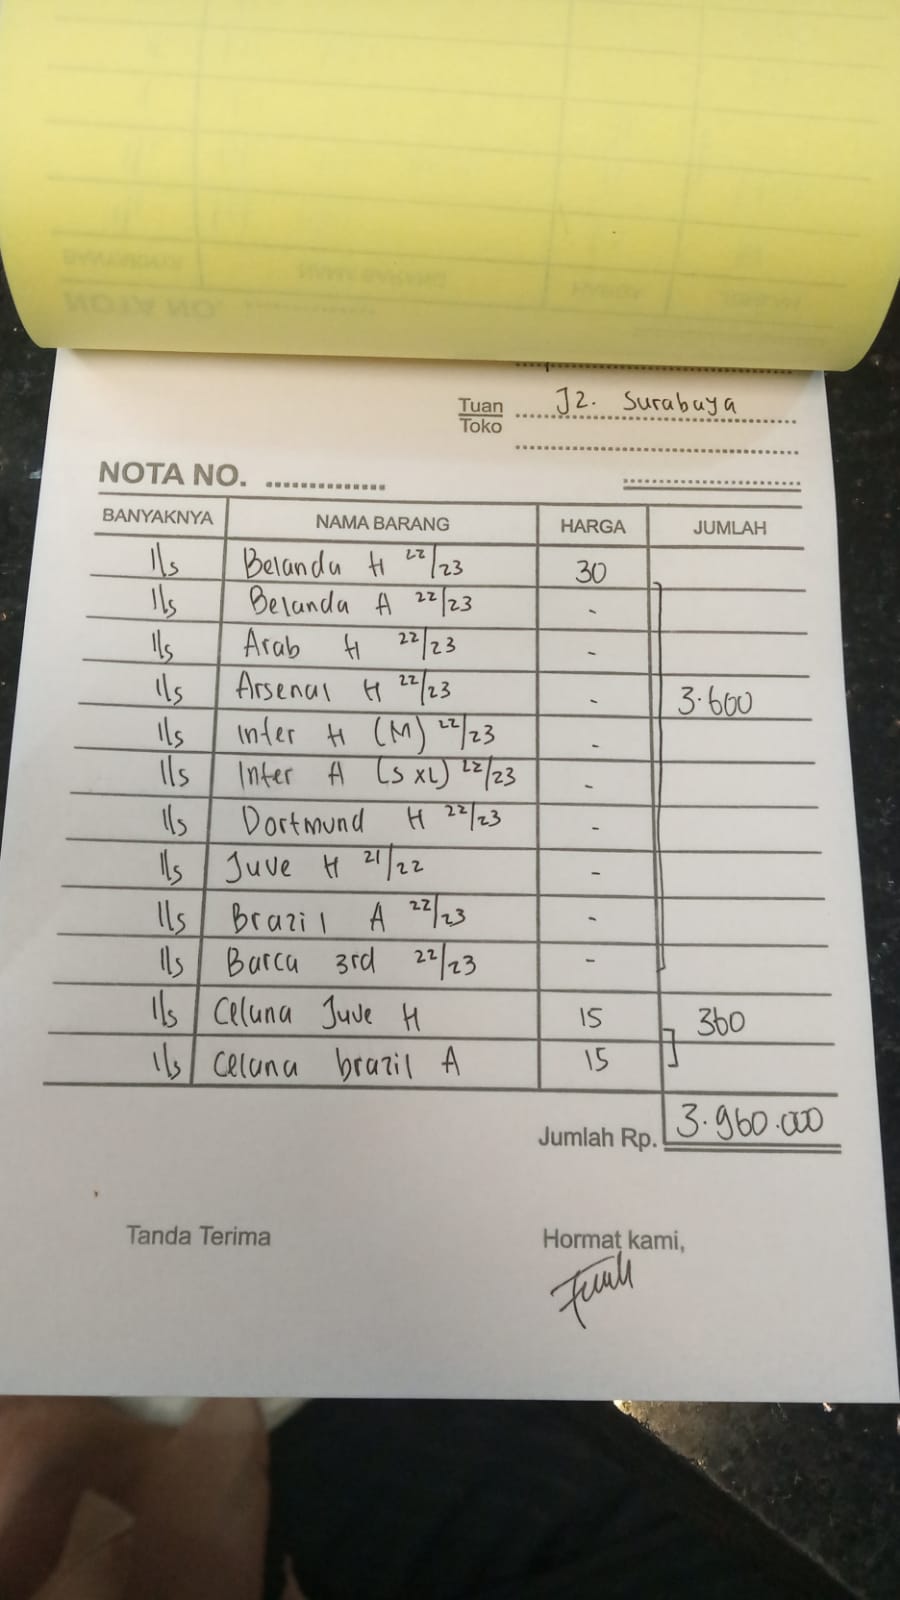 Tuan
Toko
J2. Surabaya
NOTA NO.
BANYAKNYA NAMA BARANG HARGA JUMLAH
1ls Belanda H 22/23 30
1ls Belanda A 22/23 -
1ls Arab H 22/23 -
1ls Arsenal H 22/23 - 3.600
1ls Inter H (M) 22/23 -
1ls Inter A (S XL) 22/23 -
1ls Dortmund H 22/23 -
1ls Juve H 21/22 -
1ls Brazil A 22/23 -
1ls Barca 3rd 22/23 -
1ls Celana Juve H 15 360
1ls Celana brazil A 15
Jumlah Rp. 3.960.000
Tanda Terima Hormat kami,